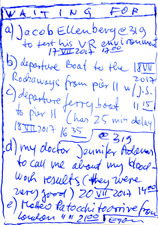 WAITING FOR
a) Jacob Ellenberg @ 319
to test his VR environment
17 VIII 2017 17:00
b) departure boat to the 18 VIII
Rockaways from pier 11 w/ J.S. 2017
c) departure ferry boat 11 15
to pier 11 (has 25 min delay
18 VIII 2017 16 35 @ 319
d) my doctor Jennifer Adams
to call me about my blood-
work results (they were
very good) 20 VII 2017 14:00
e) Matteo Patocchi to arrive from
London